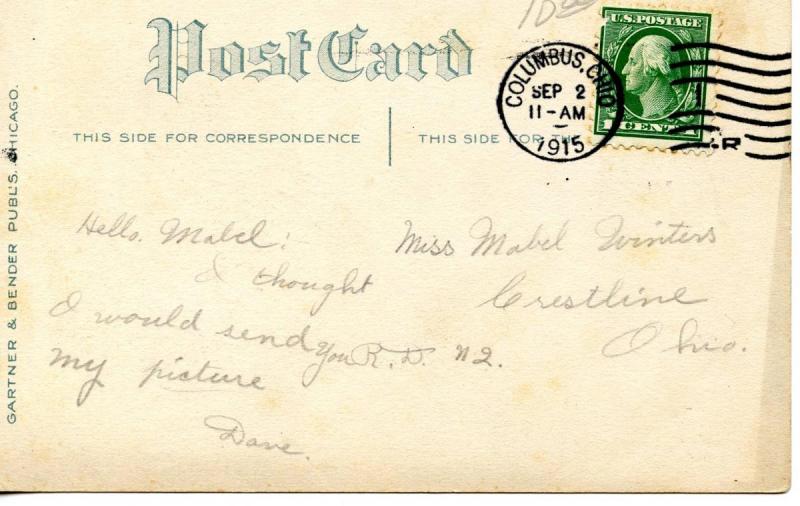 10.00
Post Card
U.S. POSTAGE
1 CENT
COLUMBUS, OHIO
SEP 2
11-AM
1915
R
THIS SIDE FOR CORRESPONDENCE
THIS SIDE FOR THE
GARTNER & BENDER PUBL'S. CHICAGO.
Hello. Mabel:
I thought
I would send you
my picture
Dave.
Miss Mabel Winters
Crestline
R.D. No 2. Ohio.